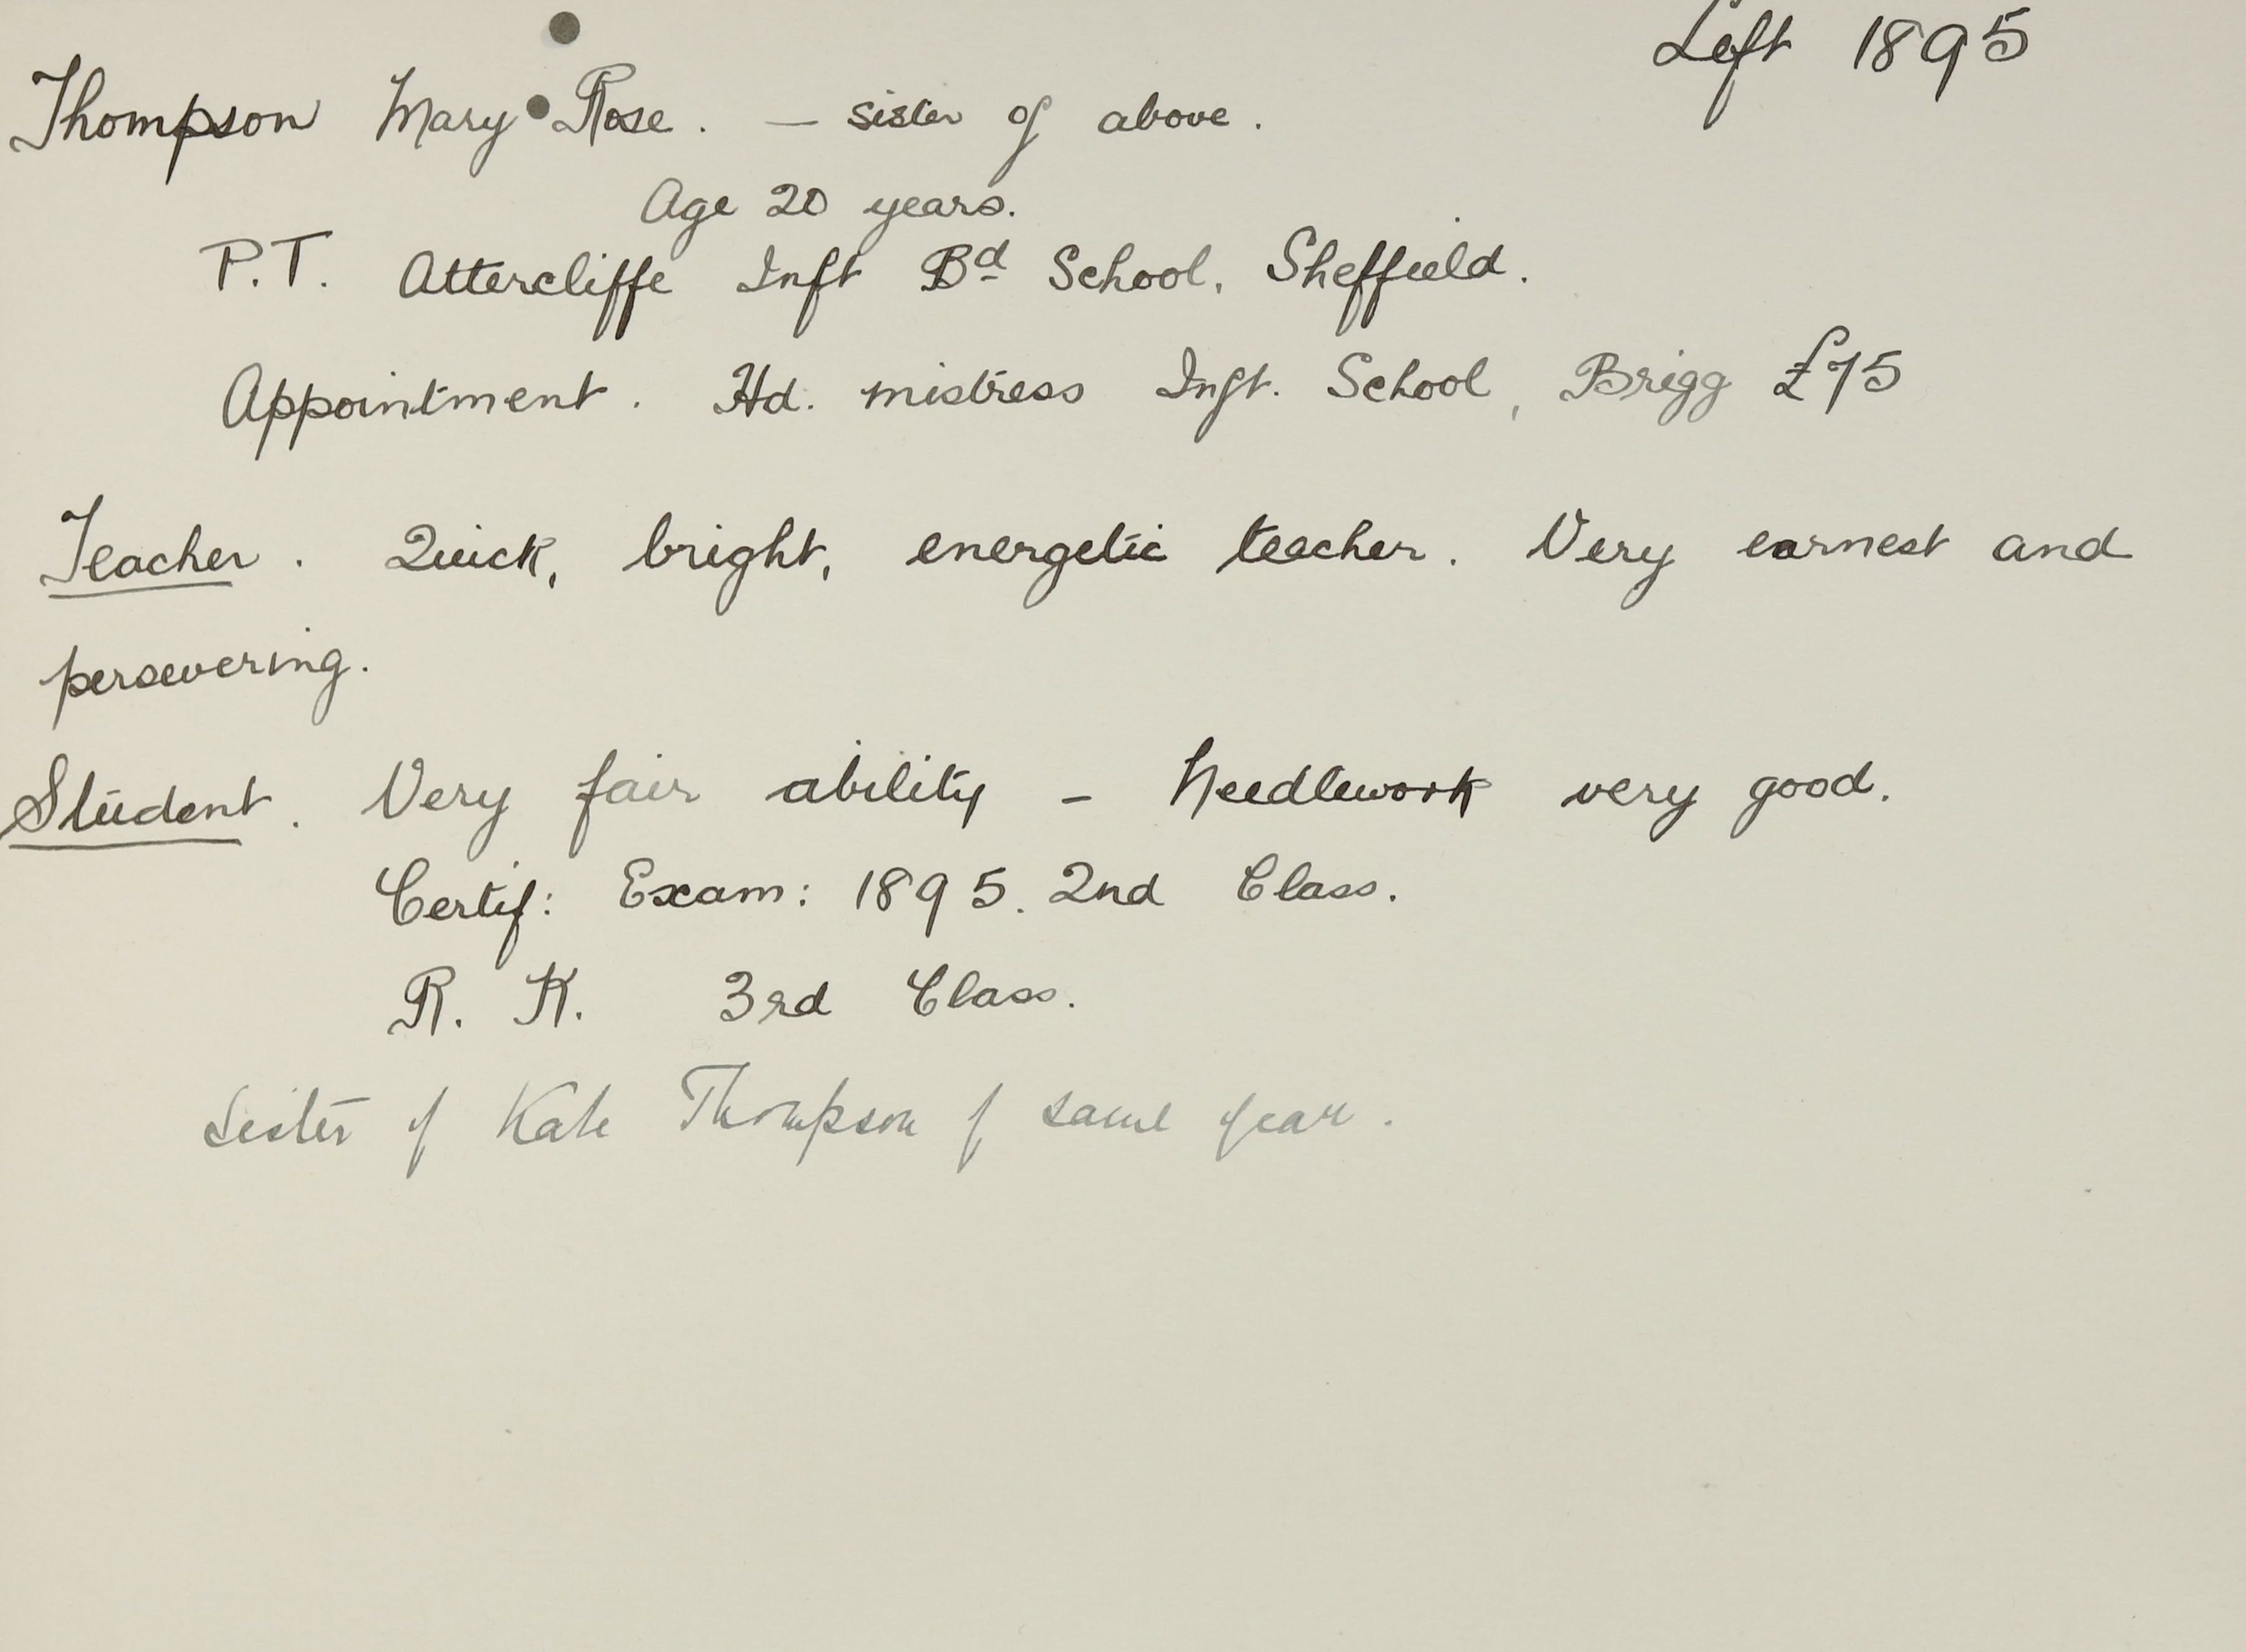 Left 1895
Thompson Mary Rose. — sister of above.
Age 20 years.
P.T. Attercliffe Inft Bd School, Sheffield.
Appointment. Hd. mistress Inft. School, Brigg £75
Teacher. Quick, bright, energetic teacher. Very earnest and
persevering.
Student. Very fair ability - Needlework very good.
Certif: Exam: 1895. 2nd Class.
R. K. 3rd Class.
Sister of Kate Thompson of same year.